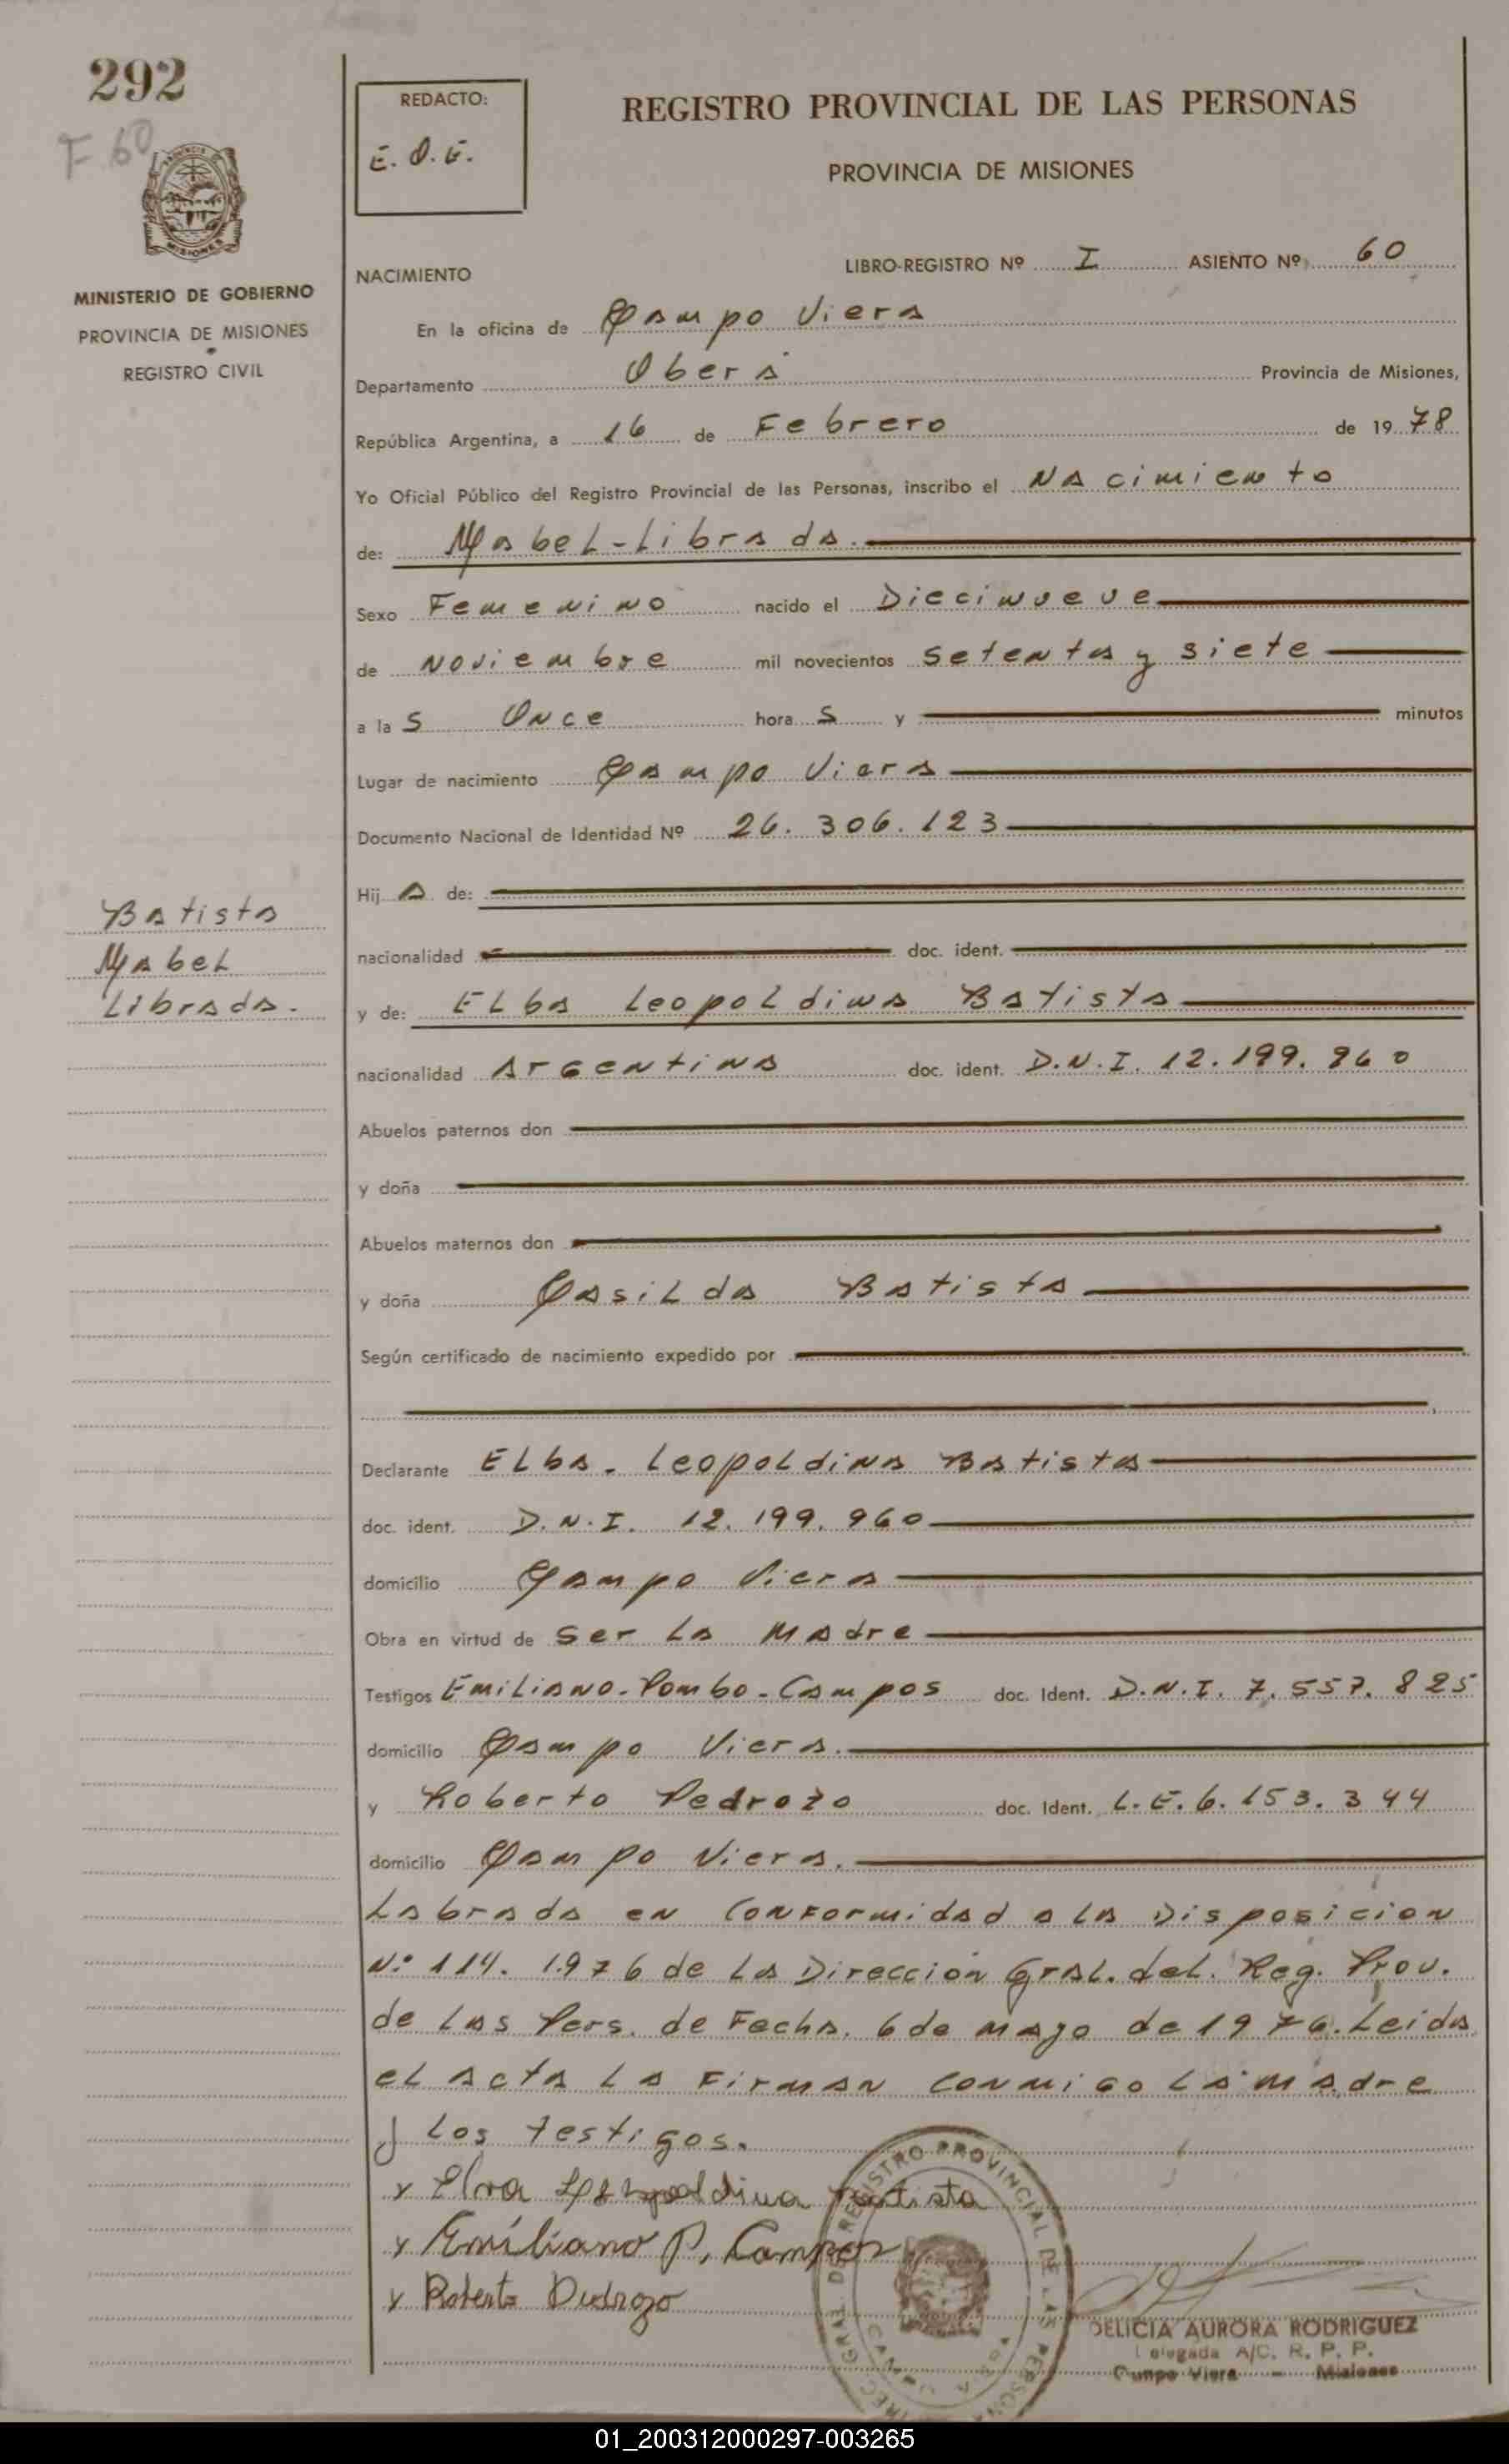 292
F 60
MINISTERIO DE GOBIERNO
PROVINCIA DE MISIONES
REGISTRO CIVIL
REDACTO:
E. O. G.
REGISTRO PROVINCIAL DE LAS PERSONAS
PROVINCIA DE MISIONES
NACIMIENTO
LIBRO-REGISTRO Nº I ASIENTO Nº 60
En la oficina de Campo Viera
Departamento Oberá Provincia de Misiones,
República Argentina, a 16 de Febrero de 1978
Yo Oficial Público del Registro Provincial de las Personas, inscribo el Nacimiento
de: Mabel-Librada.
Sexo Femenino nacido el Diecinueve
de Noviembre mil novecientos setenta y siete
a las Once horas y minutos
Lugar de nacimiento Campo Viera
Documento Nacional de Identidad Nº 26.306.123
Hija de:
nacionalidad doc. ident.
y de: Elba Leopoldina Batista
nacionalidad Argentina doc. ident. D.N.I. 12.199.960
Abuelos paternos don
y doña
Abuelos maternos don
y doña Casilda Batista
Según certificado de nacimiento expedido por
Batista
Mabel
Librada.
Declarante Elba. Leopoldina Batista
doc. ident. D.N.I. 12.199.960
domicilio Campo Viera
Obra en virtud de ser la Madre
Testigos Emiliano-Pombo-Campos doc. Ident. D.N.I. 7.557.825
domicilio Campo Viera.
y Roberto Pedrozo doc. Ident. L.E. 6.153.344
domicilio Campo Viera.
Labrada en conformidad a la Disposicion
Nº 114. 1976 de la Dirección Gral. del. Reg. Prov.
de las Pers. de Fecha. 6 de mayo de 1976. Leida
el acta la Firman conmigo la madre
y los testigos.
x Elva Leopoldina Batista
x Emíliano P. Campos
x Roberto Pedrozo
REGISTRO PROVINCIAL DE LAS PERSONAS
DELICIA AURORA RODRIGUEZ
Delegada A/C. R. P. P.
Campo Viera - Misiones
01_200312000297-003265